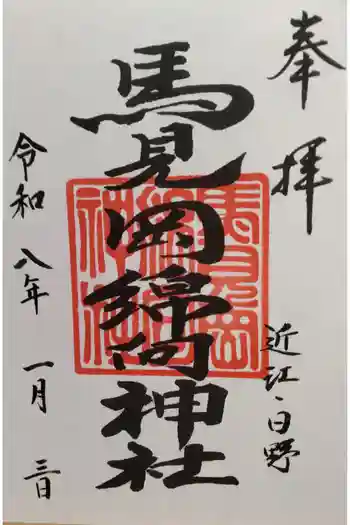 奉拝
近江・日野
馬見岡綿向神社
令和八年一月三日
馬見岡
綿向
神社